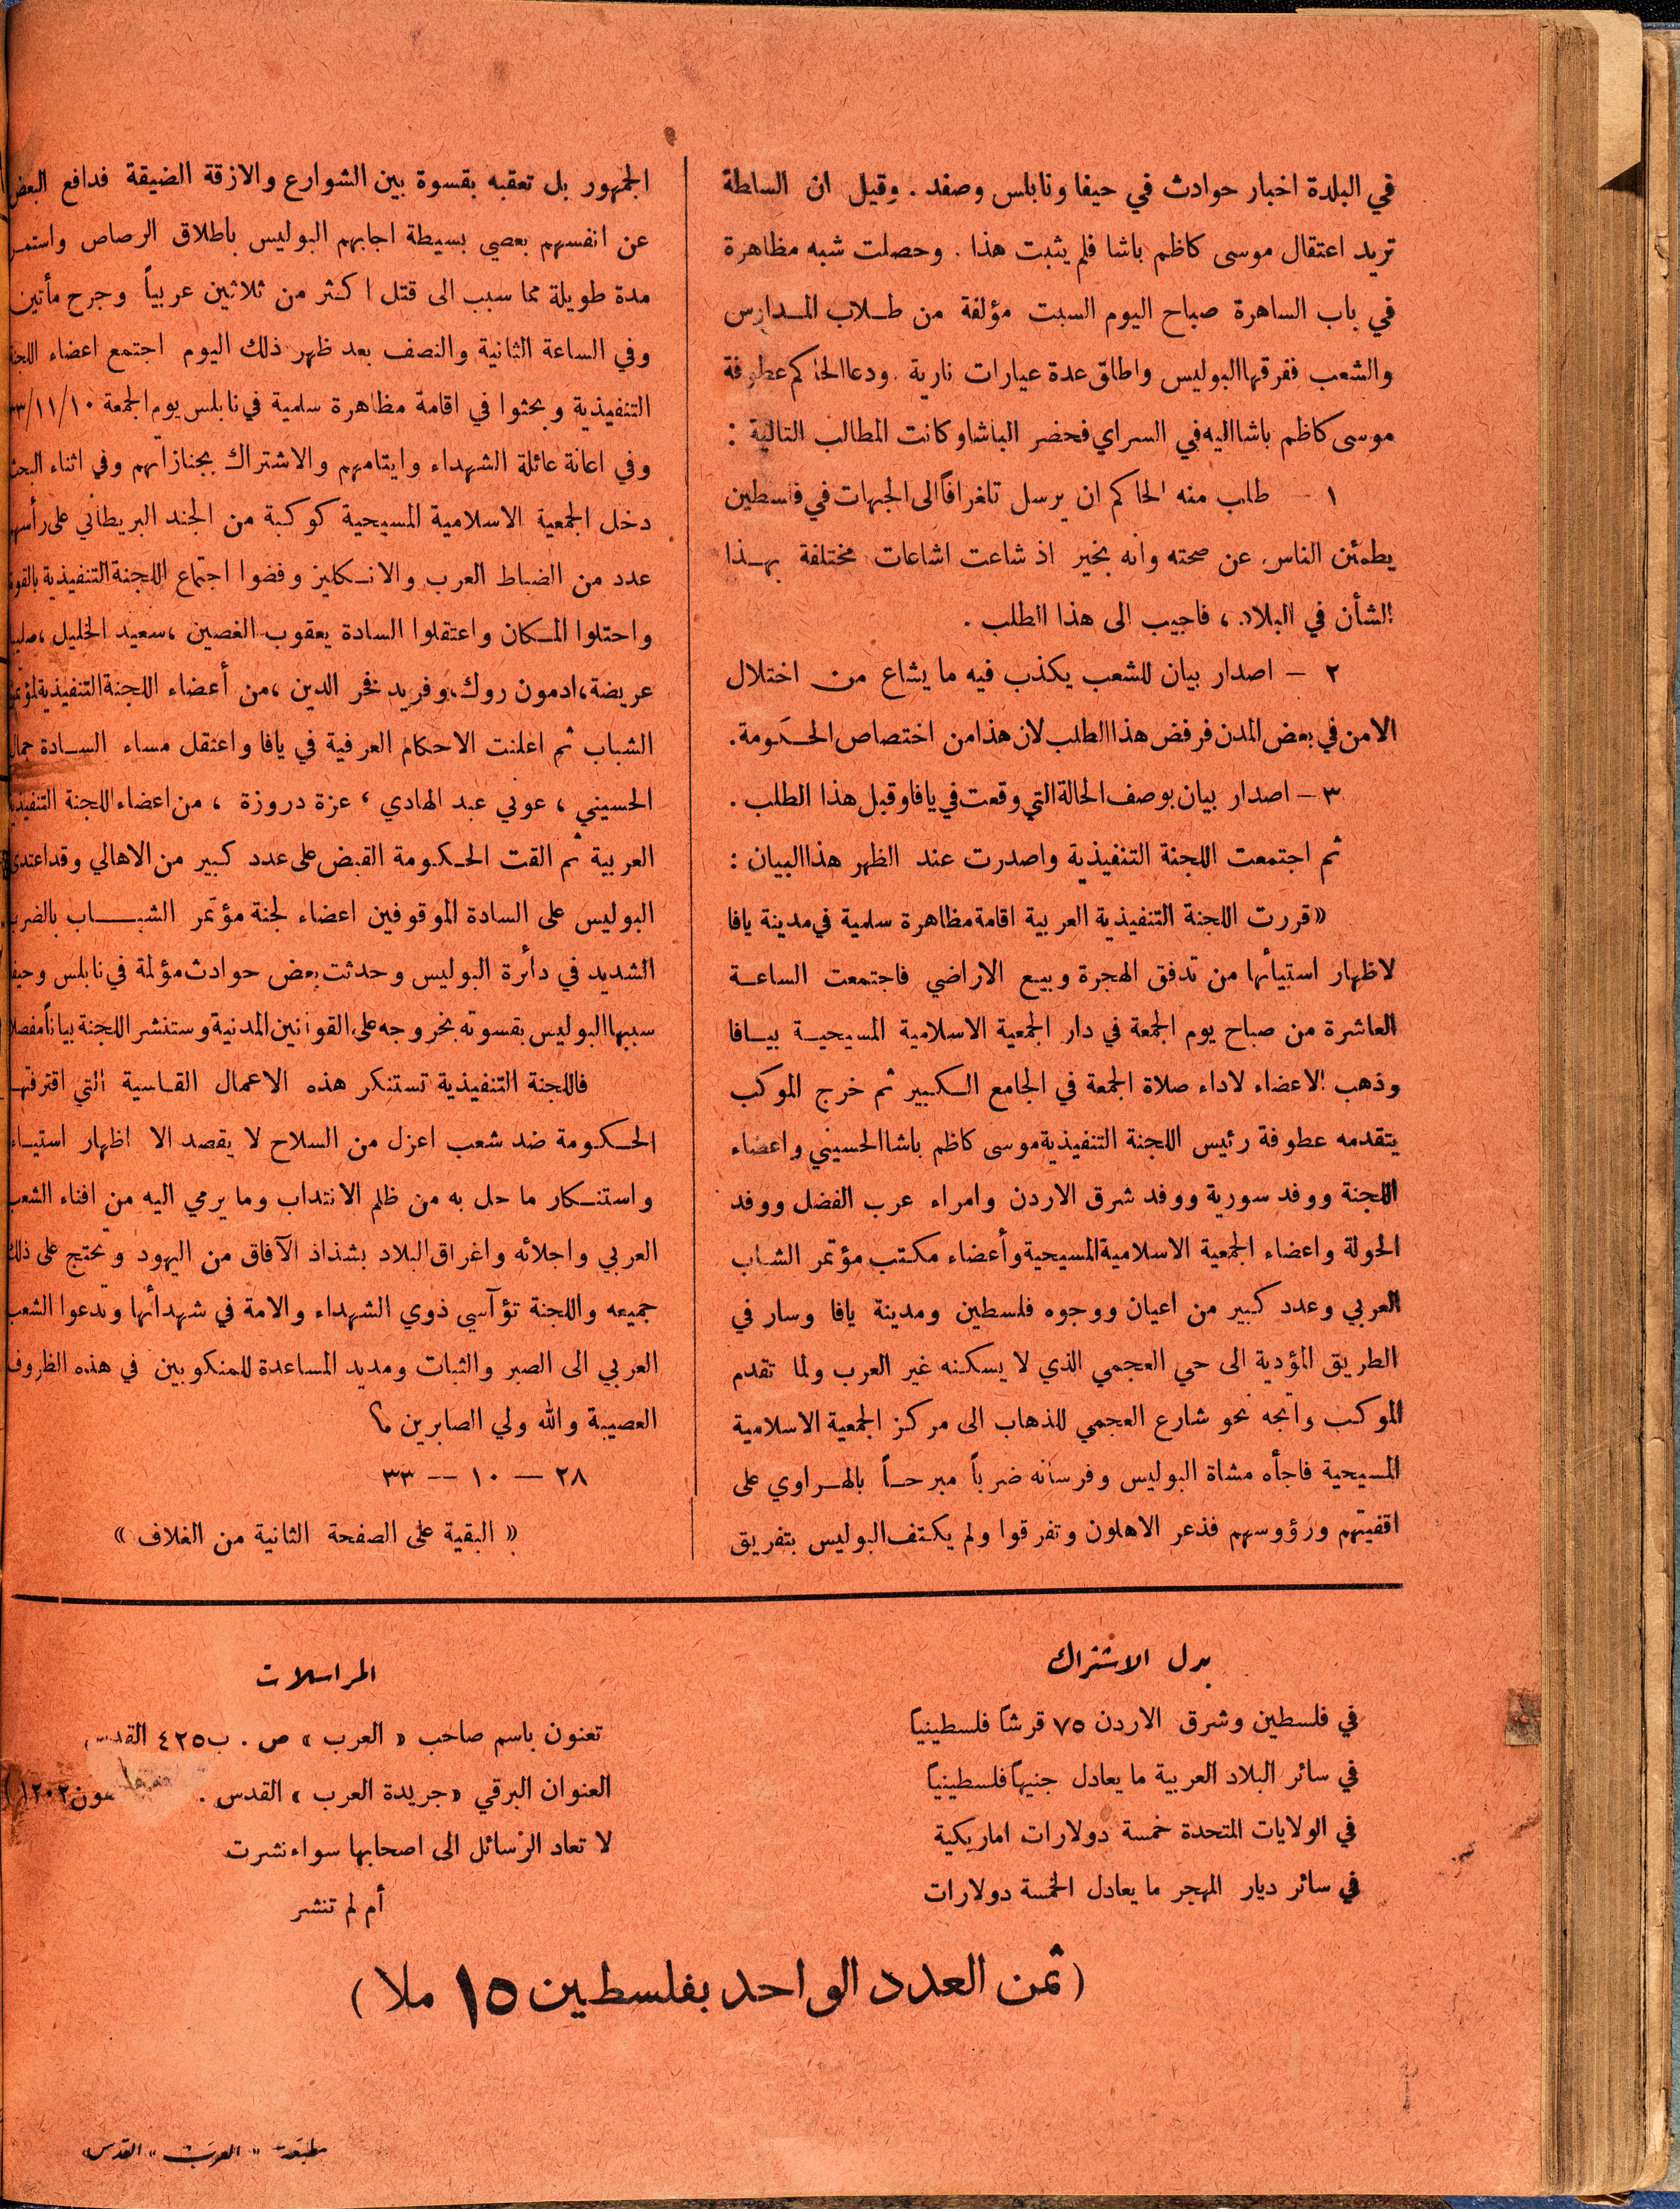 في البلدة اخبار حوادث في حيفا ونابلس وصفد . وقيل ان السلطة
تريد اعتقال موسى كاظم باشا فلم يثبت هذا . وحصلت شبه مظاهرة
في باب الساهرة صباح اليوم السبت مؤلفة من طلاب المدارس
والشعب ففرقها البوليس واطلق عدة عيارات نارية . ودعا الحاكم عطوفة
موسى كاظم باشا اليه في السراي فحضر الباشا وكانت المطالب التالية :
١ – طلب منه الحاكم ان يرسل تلغرافاً الى الجهات في فلسطين
يطمئن الناس عن صحته وانه بخير اذ شاعت اشاعات مختلفة بهذا
الشأن في البلاد ، فاجيب الى هذا الطلب .
٢ – اصدار بيان للشعب يكذب فيه ما يشاع من اختلال
الامن في بعض المدن فرفض هذا الطلب لان هذا من اختصاص الحكومة .
٣ – اصدار بيان بوصف الحالة التي وقعت في يافا وقبل هذا الطلب .
ثم اجتمعت اللجنة التنفيذية واصدرت عند الظهر هذا البيان :
« قررت اللجنة التنفيذية العربية اقامة مظاهرة سلمية في مدينة يافا
لاظهار استيأها من تدفق الهجرة وبيع الاراضي فاجتمعت الساعة
العاشرة من صباح يوم الجمعة في دار الجمعية الاسلامية المسيحية بيافا
وذهب الاعضاء لاداء صلاة الجمعة في الجامع الكبير ثم خرج الموكب
يتقدمه عطوفة رئيس اللجنة التنفيذية موسى كاظم باشا الحسيني واعضاء
اللجنة ووفد سورية ووفد شرق الاردن وامراء عرب الفضل ووفد
الحولة واعضاء الجمعية الاسلامية المسيحية وأعضاء مكتب مؤتمر الشباب
العربي وعدد كبير من اعيان ووجوه فلسطين ومدينة يافا وسار في
الطريق المؤدية الى حي العجمي الذي لا يسكنه غير العرب ولما تقدم
الموكب واتجه نحو شارع العجمي للذهاب الى مركز الجمعية الاسلامية
المسيحية فاجأه مشاة البوليس وفرسانه ضرباً مبرحاً بالهراوي على
اقفيتهم ورؤوسهم فذعر الاهلون وتفرقوا ولم يكتف البوليس بتفريق
الجمهور بل تعقبه بقسوة بين الشوارع والازقة الضيقة فدافع البعض
عن انفسهم بعصي بسيطة اجابهم البوليس باطلاق الرصاص واستمر
مدة طويلة مما سبب الى قتل اكثر من ثلاثين عربياً وجرح مأتين
وفي الساعة الثانية والنصف بعد ظهر ذلك اليوم اجتمع اعضاء اللجنة
التنفيذية وبحثوا في اقامة مظاهرة سلمية في نابلس يوم الجمعة ٣٣/١١/١٠
وفي اعانة عائلة الشهداء وايتامهم والاشتراك بجنازاتهم وفي اثناء البحث
دخل الجمعية الاسلامية المسيحية كوكبة من الجند البريطاني على رأسهم
عدد من الضباط العرب والانكليز وفضوا اجتماع اللجنة التنفيذية بالقوة
واحتلوا المكان واعتقلوا السادة يعقوب الغصين ، سعيد الخليل ، صليبا
عريضة ، ادمون روك ، وفريد فخر الدين ، من أعضاء اللجنة التنفيذية لمؤتمر
الشباب ثم اعلنت الاحكام العرفية في يافا واعتقل مساء السادة جمال
الحسيني ، عوني عبد الهادي ، عزة دروزة ، من اعضاء اللجنة التنفيذية
العربية ثم القت الحكومة القبض على عدد كبير من الاهالي وقد اعتدى
البوليس على السادة الموقوفين اعضاء لجنة مؤتمر الشباب بالضرب
الشديد في دأئرة البوليس وحدثت بعض حوادث مؤلمة في نابلس وحيفا
سببها البوليس بقسوته بخروجه على القوانين المدنية وستنشر اللجنة بياناً مفصلا
فاللجنة التنفيذية تستنكر هذه الاعمال القاسية التي اقترفتها
الحكومة ضد شعب اعزل من السلاح لا يقصد الا اظهار استياء
واستنكار ما حل به من ظلم الانتداب وما يرمي اليه من افناء الشعب
العربي واجلائه واغراق البلاد بشذاذ الآفاق من اليهود وتحتج على ذلك
جميعه واللجنة تؤآسي ذوي الشهداء والامة في شهدأئها وتدعوا الشعب
العربي الى الصبر والثبات ومديد المساعدة للمنكوبين في هذه الظروف
العصيبة والله ولي الصابرين م
٢٨ – ١٠ – ٣٣
« البقية على الصفحة الثانية من الغلاف »
بدل الاشتراك
في فلسطين وشرق الاردن ٧٥ قرشاً فلسطينياً
في سائر البلاد العربية ما يعادل جنيهاً فلسطينياً
في الولايات المتحدة خمسة دولارات اماريكية
في سائر ديار المهجر ما يعادل الخمسة دولارات
المراسلات
تعنون باسم صاحب « العرب » ص . ب ٤٢٥ القدس
العنوان البرقي « جريدة العرب » القدس . ١٢٠٢ )
لا تعاد الرسائل الى اصحابها سواء نشرت
أم لم تنشر
( ثمن العدد الواحد بفلسطين ١٥ ملا )
مطبعة « العرب » القدس